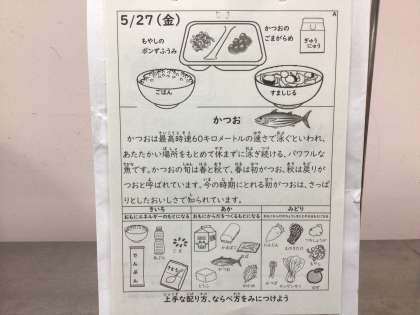 5/27(金)
A
もやしの
ポンずふうみ
かつおの
ごまがらめ
ぎゅう
にゅう
ごはん
すましじる
かつお
かつおは最高時速60キロメートルの速さで泳ぐといわれ、
あたたかい場所をもとめて休まずに泳ぎ続ける、パワフルな
魚です。かつおの旬は春と秋で、春は初がつお、秋は戻りが
つおと呼ばれています。今の時期にとれる初がつおは、さっぱ
りとしたおいしさで知られています。
きいろ
あか
みどり
おもにエネルギーのもとになる
おもにからだをつくるもとになる
でんぷん
かつお
とうふ
上手な配り方、ならべ方をみにつけよう